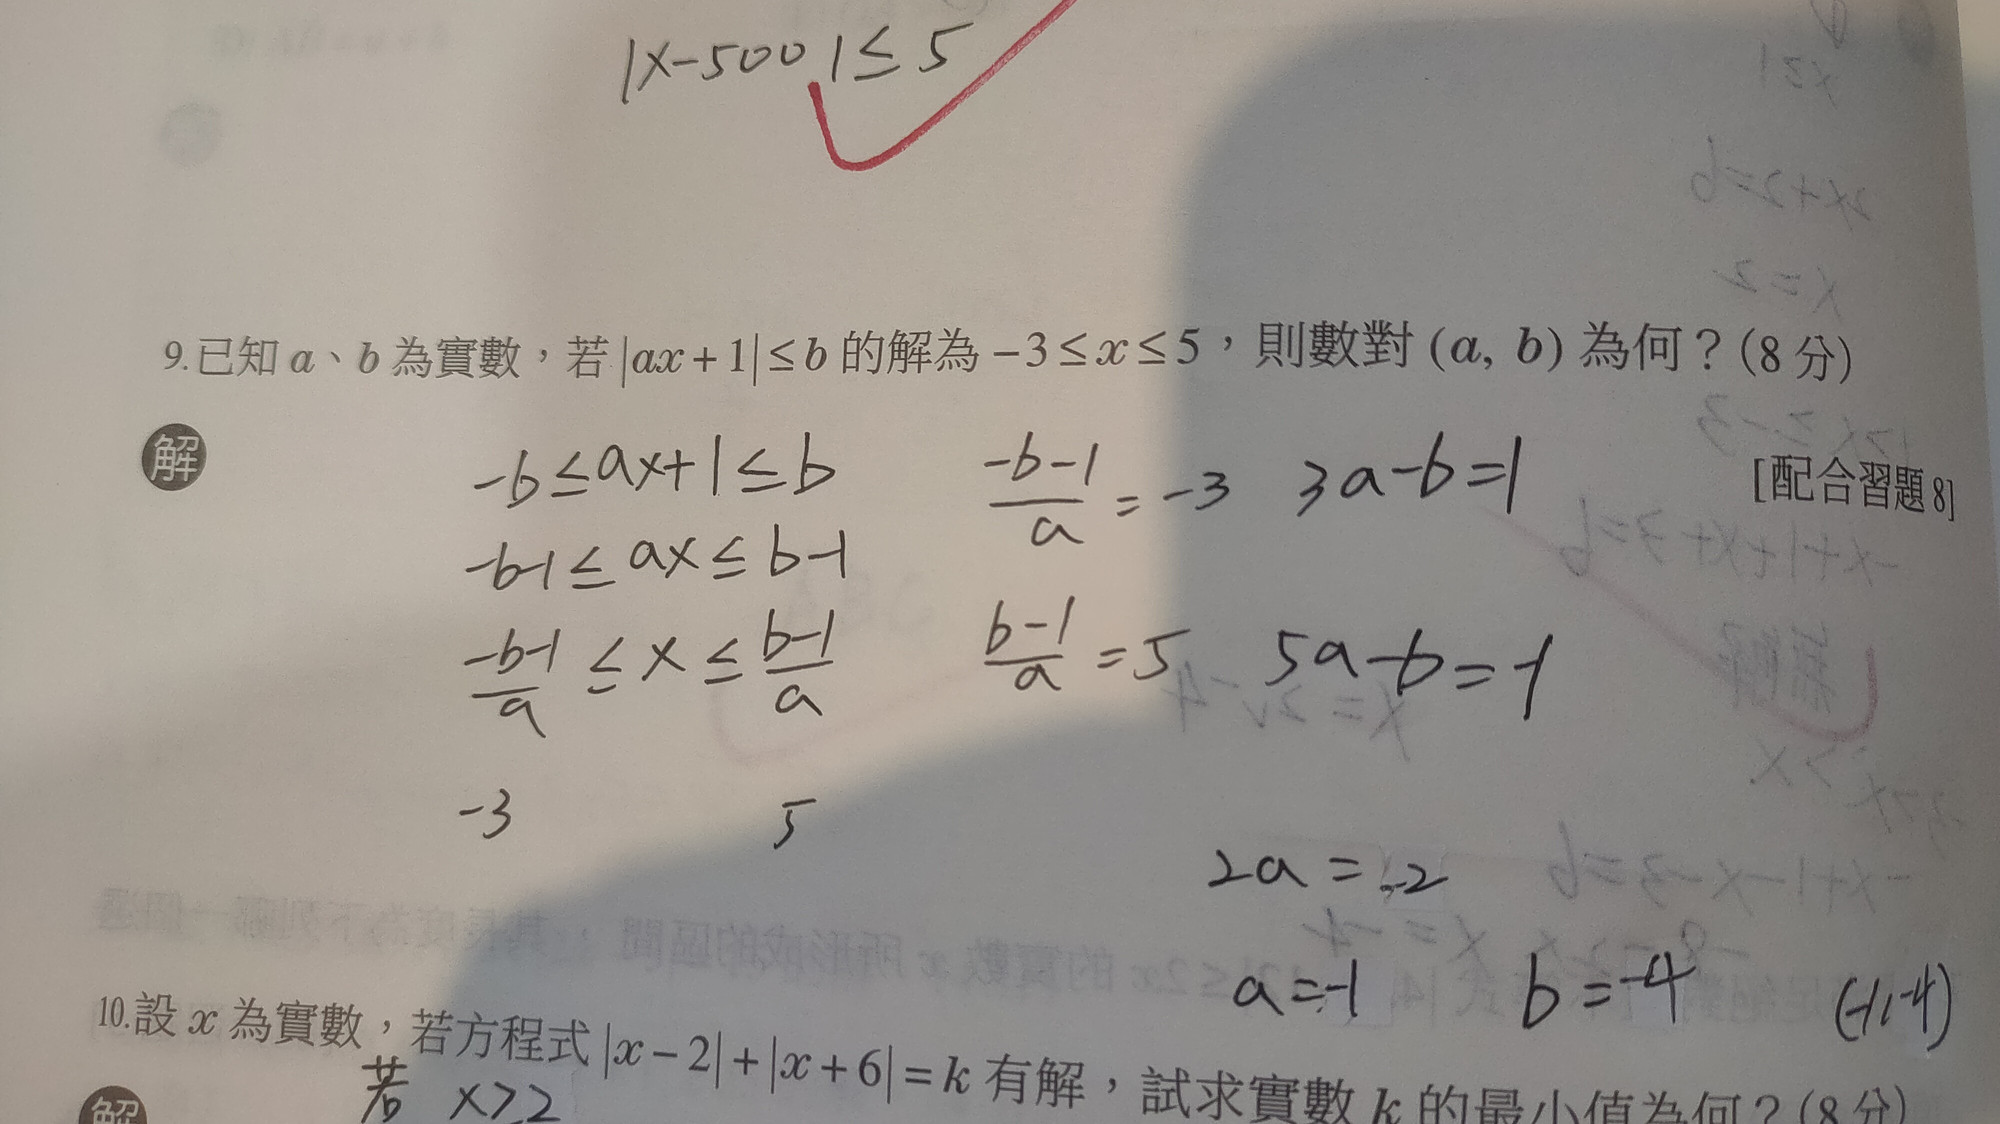 |x-500|≤5
9.已知 a、b 為實數，若 |ax+1|≤b 的解為 -3≤x≤5，則數對 (a, b) 為何？(8 分)
解
[配合習題8]
-b≤ax+1≤b
-b-1≤ax≤b-1
\frac{-b-1}{a}≤x≤\frac{b-1}{a}
-3 5
\frac{-b-1}{a}=-3 3a-b=1
\frac{b-1}{a}=5 5a-b=-1
2a=-2
a=-1 b=-4 (-1,-4)
10.設 x 為實數，若方程式 |x-2|+|x+6|=k 有解，試求實數 k 的最小值為何？(8 分)
解
若 x≥2